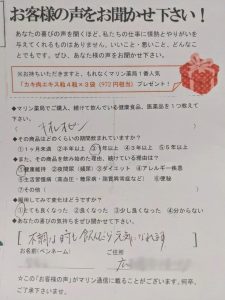 お客様の声をお聞かせ下さい！
あなたの喜びの声を聞くほど、私たちの仕事に情熱とやりがいを
与えてくれるものはありません。いいこと・悪いこと、どんなこ
とでもです。ぜひ、あなた様の声をお聞かせ下さい。
※お持ちいただきますと、もれなくマリン薬局1番人気
「カキ肉エキス粒4粒×3袋（972円相当）プレゼント！
◆マリン薬局でご購入、続けて飲んでいる健康食品、医薬品を1つ教えて
下さい。
◆その商品はどのくらいの期間飲まれていますか？
①1ヶ月未満 ②半年以上 ③1年以上 ④3年以上 ⑤5年以上
◆また、その商品を飲み始めた理由、続けている理由は？
①健康維持 ②夜間頻尿（尿漏） ③ダイエット ④アレルギー疾患
⑤生活習慣病（高血圧・糖尿病・脂質異常症など） ⑥便秘
⑦その他（ ）
◆服用してみて変化はどうですか？
①とても良くなった ②良くなった ③少し良くなった ④分からない
◆あなたの喜びの気持ちをぜひ聞かせて下さい。
不調な時も飲んだら元気になれます
お名前（ペンネーム） ご住所
☆この「お客様の声」がマリン通信に載ることがございます。何卒、
ご了承下さいませ。